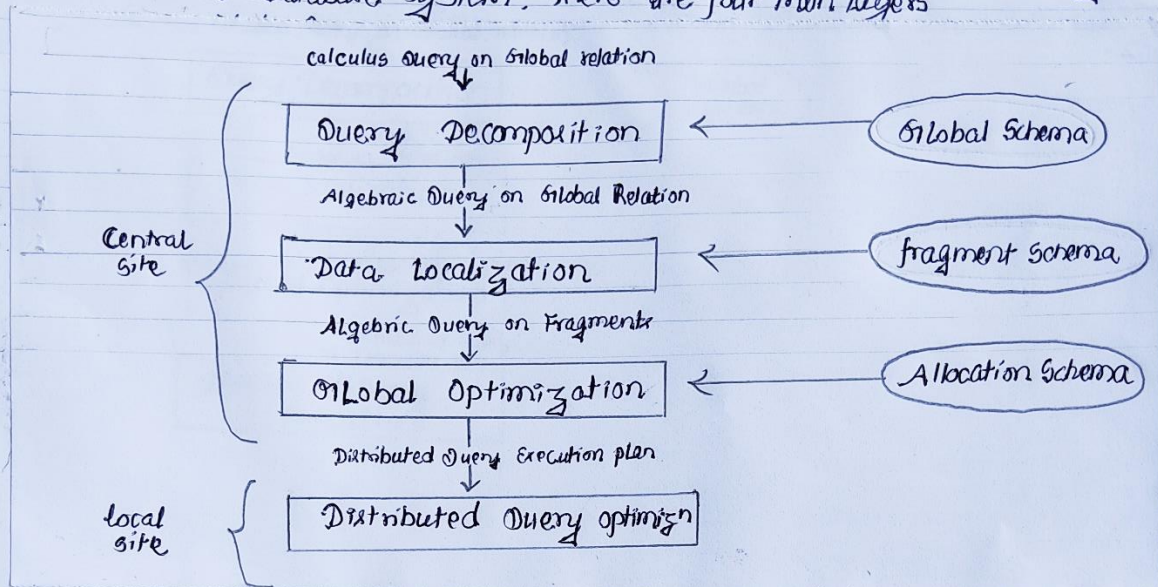 there are four main layers
Calculus Query on Global relation
Query Decomposition
Global Schema
Algebraic Query on Global Relation
Central
site
Data Localization
fragment Schema
Algebric Query on Fragments
Global Optimization
Allocation Schema
Distributed Query Execution plan
local
site
Distributed Query optimizn